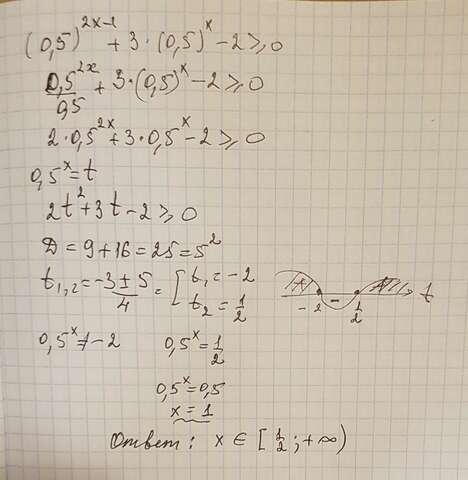 (0,5)^{2x-1} + 3 · (0,5)^x - 2 ⩾ 0
0,5^{2x}/0,5 + 3 · (0,5)^x - 2 ⩾ 0
2 · 0,5^{2x} + 3 · 0,5^x - 2 ⩾ 0
0,5^x = t
2t^2 + 3t - 2 ⩾ 0
D = 9 + 16 = 25 = 5^2
t_{1,2} = (-3 ± 5)/4 = [ t_1 = -2
t_2 = 1/2
+ - + t
-2 1/2
0,5^x ≠ -2 0,5^x = 1/2
0,5^x = 0,5
x = 1
Ответ: x ∈ [1/2; +∞)